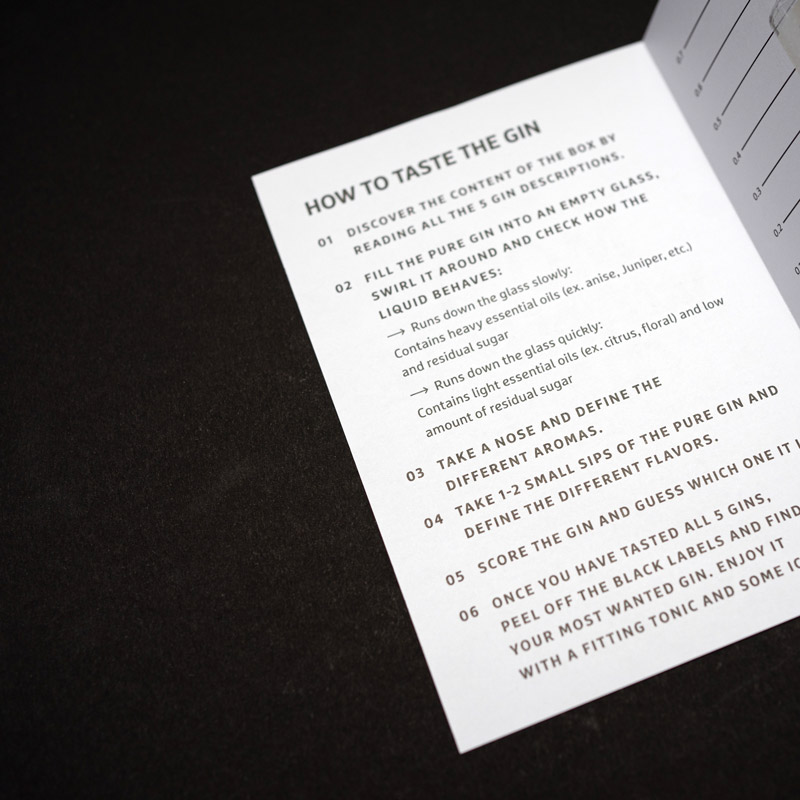 HOW TO TASTE THE GIN
01 DISCOVER THE CONTENT OF THE BOX BY
READING ALL THE 5 GIN DESCRIPTIONS.
02 FILL THE PURE GIN INTO AN EMPTY GLASS,
SWIRL IT AROUND AND CHECK HOW THE
LIQUID BEHAVES:
→ Runs down the glass slowly:
Contains heavy essential oils (ex. anise, Juniper, etc.)
and residual sugar
→ Runs down the glass quickly:
Contains light essential oils (ex. citrus, floral) and low
amount of residual sugar
03 TAKE A NOSE AND DEFINE THE
DIFFERENT AROMAS.
04 TAKE 1-2 SMALL SIPS OF THE PURE GIN AND
DEFINE THE DIFFERENT FLAVORS.
05 SCORE THE GIN AND GUESS WHICH ONE IT
06 ONCE YOU HAVE TASTED ALL 5 GINS,
PEEL OFF THE BLACK LABELS AND FIND
YOUR MOST WANTED GIN. ENJOY IT
WITH A FITTING TONIC AND SOME
0.7
0.6
0.5
0.4
0.3
0.2